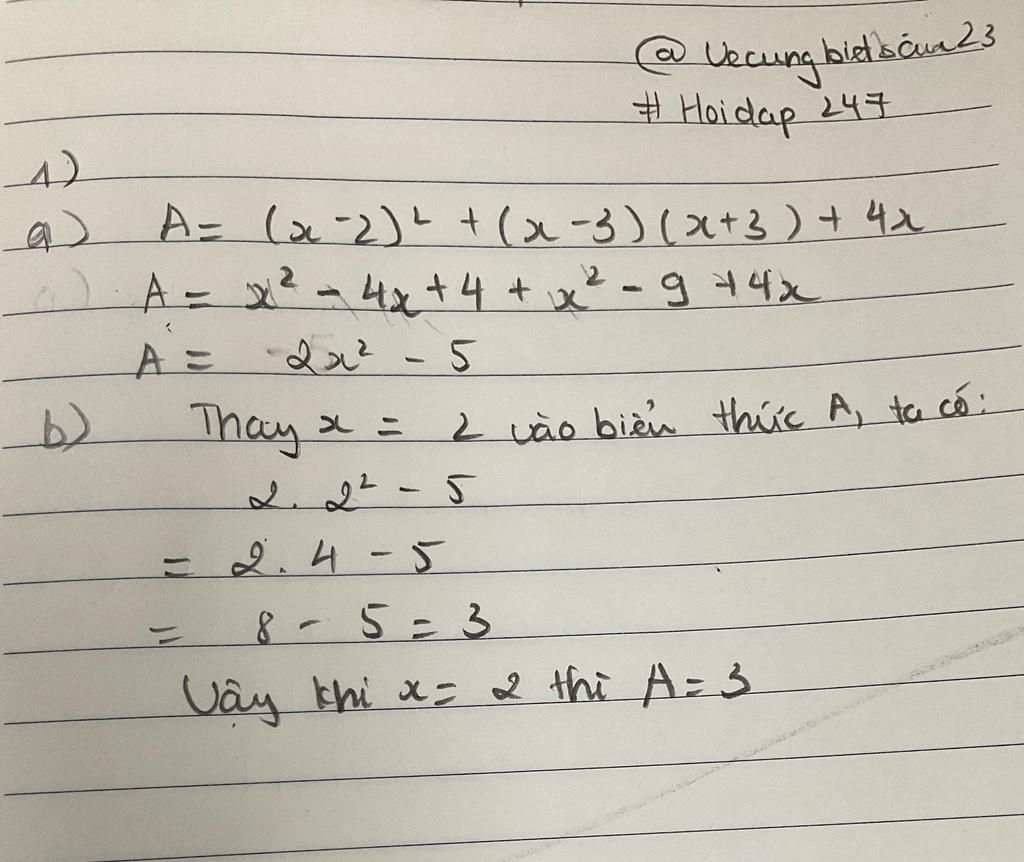 @Vecungbietsầu23
# Hoidap 247
1)
a) A = (x - 2)² + (x - 3)(x + 3) + 4x
A = x² - 4x + 4 + x² - 9 + 4x
A = 2x² - 5
b) Thay x = 2 vào biểu thức A, ta có:
2. 2² - 5
= 2. 4 - 5
= 8 - 5 = 3
Vậy khi x = 2 thì A = 3